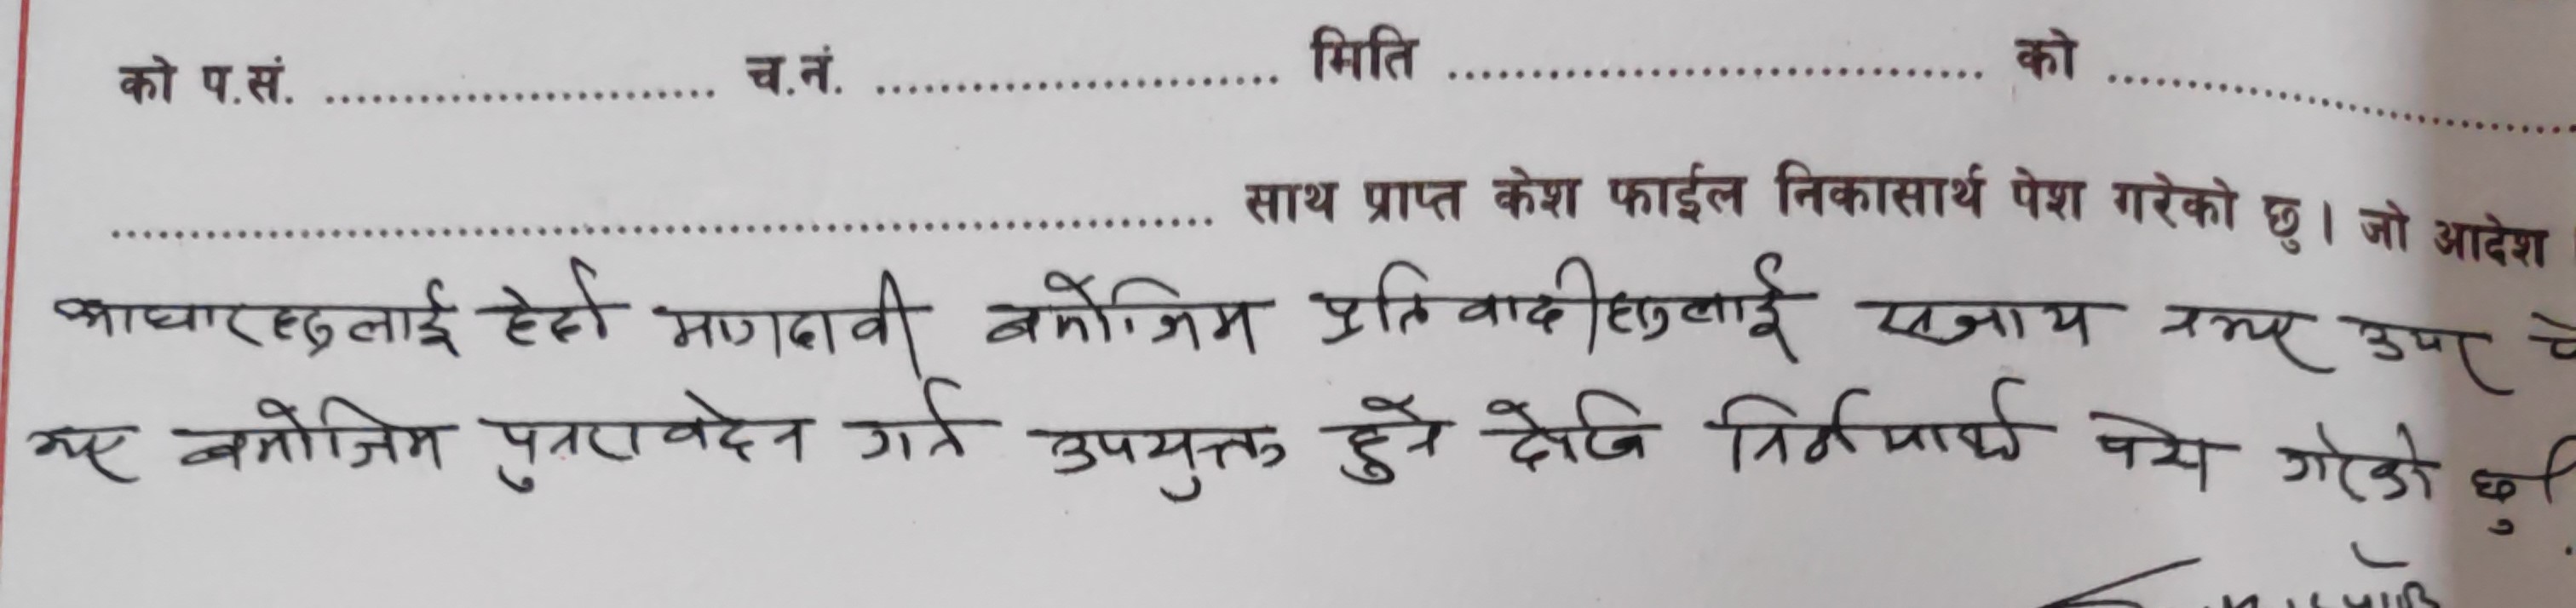 को प.सं. ........................ च.नं. ........................ मिति ................................ को ................................
................................................................ साथ प्राप्त केश फाईल निकासार्थ पेश गरेको छु। जो आदेश
आधारहरुलाई हेर्दा मागदावी बमोजिम प्रतिवादीहरुलाई सजाय नभए उपर
भए बमोजिम पुनरावेदन गर्न उपयुक्त हुने देखि निर्णयार्थ पेश गरेको छु।